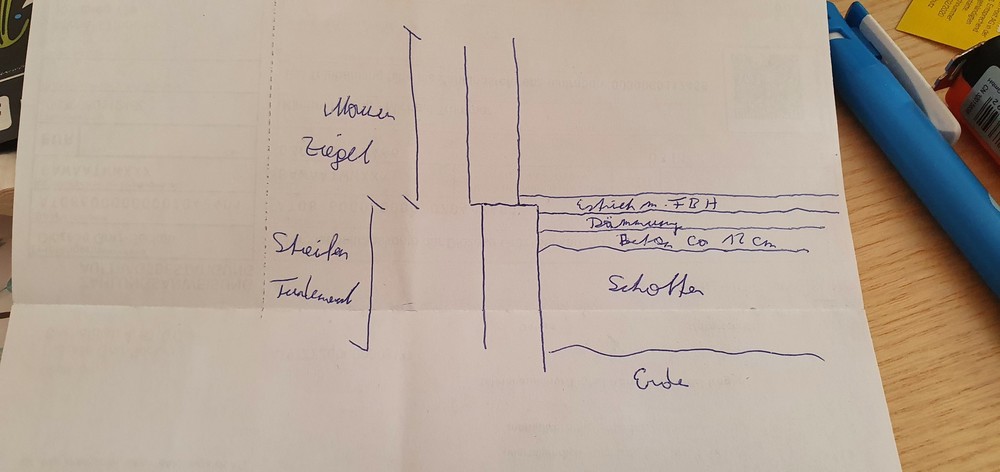 Mauer
Ziegel
Estrich m. FBH
Dämmung
Beton ca 12 cm
Streifen
Fundament
Schotter
Erde